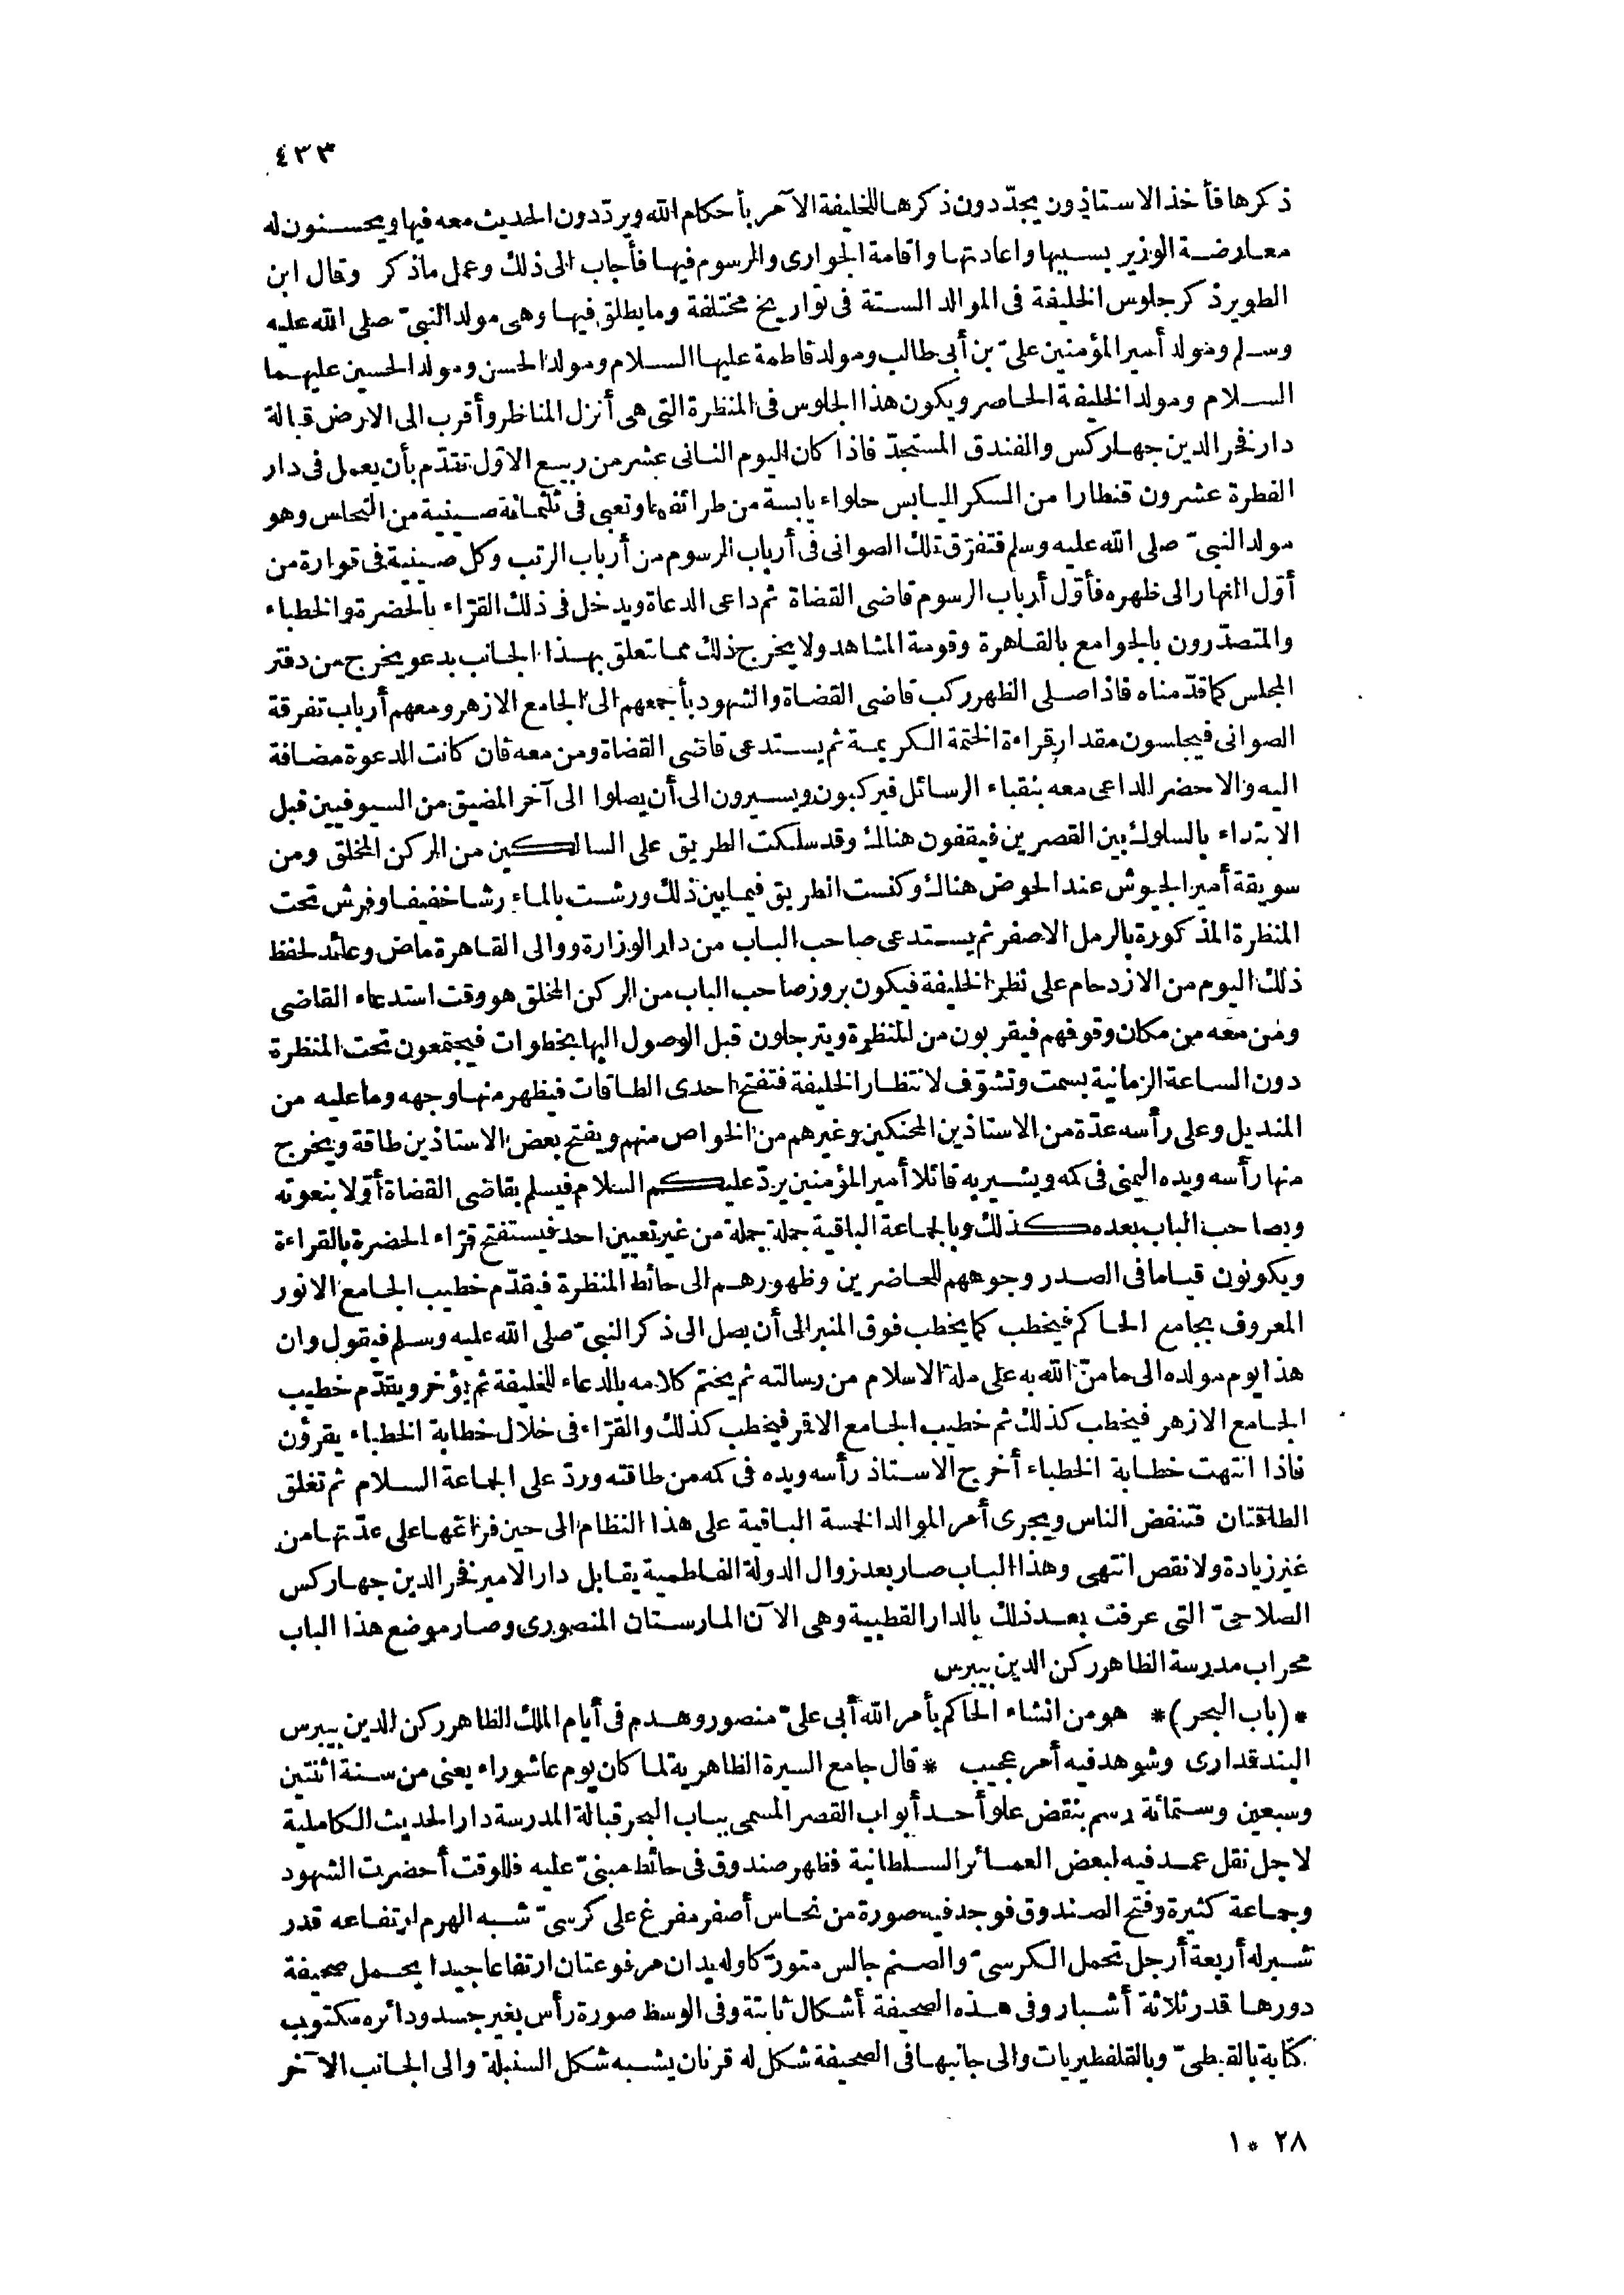 ٤٣٣
ذكرها فأخذ الاستاذون يجدّدون ذكرها للخليفة الآمر بأحكام الله ويردّدون الحديث معه فيها ويحسنون له
معارضة الوزير بسببها واعادتها واقامة الجوارى والرسوم فيها فأجاب الى ذلك وعمل ماذكر وقال ابن
الطوير ذكر جلوس الخليفة فى الموالد الستة فى تواريخ مختلفة وما يطلق فيها وهى مولد النبىّ صلى الله عليه
وسلم ومولد أمير المؤمنين علىّ بن أبى طالب ومولد فاطمة عليها السلام ومولد الحسن ومولد الحسين عليهما
السلام ومولد الخليفة الحاضر ويكون هذا الجلوس فى المنظرة التى هى أنزل المناظر وأقرب الى الارض قبالة
دار فخر الدين جهاركس والفندق المستجدّ فاذا كان اليوم الثانى عشر من ربيع الاوّل تقدّم بأن يعمل فى دار
الفطرة عشرون قنطارا من السكر اليابس حلواء يابسة من طرائفها وتعبى فى ثلثمائة صينية من النحاس وهو
مولد النبىّ صلى الله عليه وسلم فتفرّق تلك الصوانى فى أرباب الرسوم من أرباب الرتب وكل صينية فى قوارة من
أوّل النهار الى ظهره فأوّل أرباب الرسوم قاضى القضاة ثم داعى الدعاة ويدخل فى ذلك القرّاء بالحضرة والخطباء
والمتصدّرون بالجوامع بالقاهرة وقومة المشاهد ولا يخرج ذلك مما تعلق بهذا الجانب بدعو يخرج من دفتر
المجلس كما قدّمناه فاذا صلى الظهر ركب قاضى القضاة والشهود بأجمعهم الى الجامع الازهر ومعهم أرباب تفرقة
الصوانى فيجلسون مقدار قراءة الختمة الكريمة ثم يستدعى قاضى القضاة ومن معه فان كانت الدعوة مضافة
اليه والا حضر الداعى معه بنقباء الرسائل فيركبون ويسيرون الى أن يصلوا الى آخر المضيق من السيوفيين قبل
الابتداء بالسلوك بين القصرين فيقفون هنالك وقد سلكت الطريق على السالكين من الركن المخلق ومن
سويقة أمير الجيوش عند الحوض هناك وكنست الطريق فيما بين ذلك ورشت بالماء رشا خفيفا وفرش تحت
المنظرة المذكورة بالرمل الاصفر ثم يستدعى صاحب الباب من دار الوزارة ووالى القاهرة ماض وعائد لحفظ
ذلك اليوم من الازدحام على نظر الخليفة فيكون بروز صاحب الباب من الركن المخلق هو وقت استدعاء القاضى
ومن معه من مكان وقوفهم فيقربون من المنظرة ويترجلون قبل الوصول اليها بخطوات فيجتمعون تحت المنظرة
دون الساعة الزمانية بسمت وتشوّف لانتظار الخليفة فتفتح احدى الطاقات فيظهر منها وجهه وما عليه من
المنديل وعلى رأسه عدّة من الاستاذين المحنكين وغيرهم من الخواص منهم ويفتح بعض الاستاذين طاقة ويخرج
منها رأسه ويده اليمنى فى كمه ويشير به قائلا أمير المؤمنين يردّ عليكم السلام فيسلم بقاضى القضاة أوّلا بنعوته
وبصاحب الباب بعده كذلك وبالجماعة الباقية جملة جملة من غير تعيين احد فيستفتح قرّاء الحضرة بالقراءة
ويكونون قياما فى الصدر وجوههم للحاضرين وظهورهم الى حائط المنظرة فيقدّم خطيب الجامع الانور
المعروف بجامع الحاكم فيخطب كما يخطب فوق المنبر الى أن يصل الى ذكر النبىّ صلى الله عليه وسلم فيقول وان
هذا يوم مولده الى ما منّ الله به على ملة الاسلام من رسالته ثم يختم كلامه بالدعاء للخليفة ثم يؤخر ويقدّم خطيب
الجامع الازهر فيخطب كذلك ثم خطيب الجامع الاقمر فيخطب كذلك والقرّاء فى خلال خطابة الخطباء يقرؤن
فاذا انتهت خطابة الخطباء أخرج الاستاذ رأسه ويده فى كمه من طاقته وردّ على الجماعة السلام ثم تغلق
الطاقتان فتنفض الناس ويجرى أمر الموالد الخمسة الباقية على هذا النظام الى حين فراغها على عدّتها من
غير زيادة ولا نقص انتهى وهذا الباب صار بعد زوال الدولة الفاطمية يقابل دار الامير فخر الدين جهاركس
الصلاحىّ التى عرفت بعد ذلك بالدار القطبية وهى الآن المارستان المنصورى وصار موضع هذا الباب
محراب مدرسة الظاهر ركن الدين بيبرس
* (باب البحر) * هو من انشاء الحاكم بأمر الله أبى علىّ منصور وهدم فى أيام الملك الظاهر ركن الدين بيبرس
البندقدارى وشوهد فيه أمر عجيب * قال جامع السيرة الظاهرية لما كان يوم عاشوراء يعنى من سنة اثنتين
وسبعين وستمائة رسم بنقض علو أحد أبواب القصر المسمى بباب البحر قبالة المدرسة دار الحديث الكاملية
لاجل نقل عمد فيه لبعض العمائر السلطانية فظهر صندوق فى حائط مبنىّ عليه فللوقت أحضرت الشهود
وجماعة كثيرة وفتح الصندوق فوجد فيه صورة من نحاس أصفر مفرغ على كرسىّ شبه الهرم ارتفاعه قدر
شبر له أربعة أرجل تحمل الكرسىّ والصنم جالس متورّكا وله يدان مرفوعتان ارتفاعا جيدا يحمل صحيفة
دورها قدر ثلاثة أشبار وفى هذه الصحيفة أشكال ثابتة وفى الوسط صورة رأس بغير جسد ودائره مكتوب
كتابة بالقبطىّ وبالقلفطيريات والى جانبها فى الصحيفة شكل له قرنان يشبه شكل السنبلة والى الجانب الآخر
٢٨ * ١